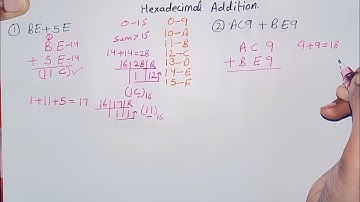 Hexadecimal Addition
① BE+5E
B E-14
+ 5 E-14
(11C)
1+11+5=17
0-15
sum>15
14+14=28
16|28|R
1|12
(1C)16
16|17|R
1|1
(11)16
0-9
10-A
11-B
12-C
13-D
14-E
15-F
② AC9+BE9
A C 9
+ B E 9
9+9=18